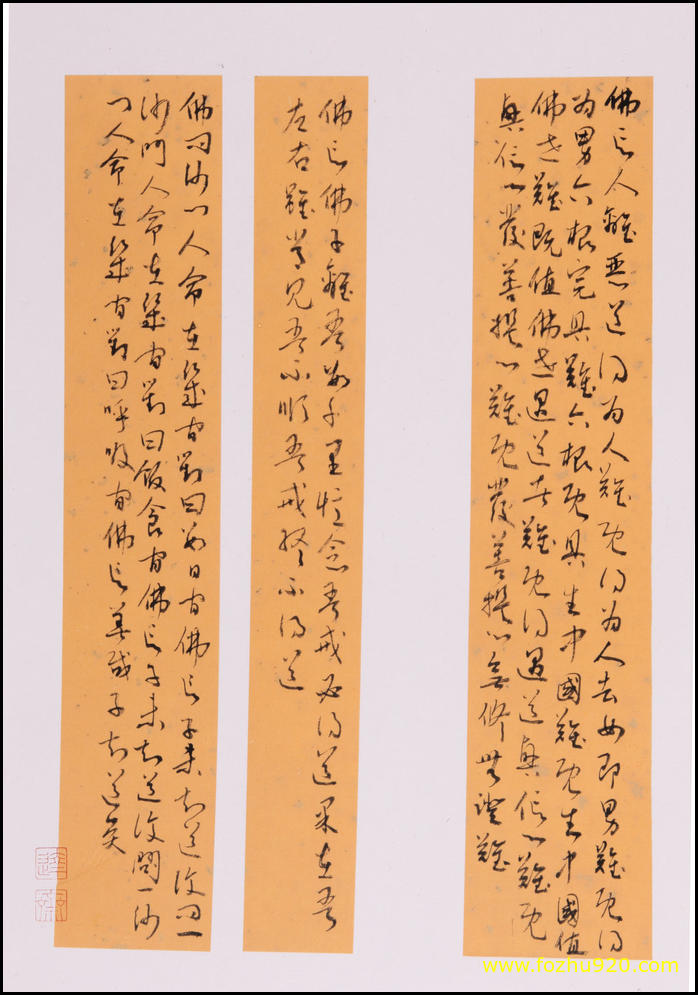 佛言人離惡道得為人難既得為人去女即男難既得
為男六根完具難六根既具生中國難既生中國值
佛世難既值佛世遇道者難既得遇道興信心難既
興信心發菩提心難既發菩提心無修無證難
佛言佛子離吾數千里憶念吾戒必得道果在吾
左右雖常見吾不順吾戒終不得道
佛問沙門人命在幾間對曰數日間佛言子未知道復問一
沙門人命在幾間對曰飯食間佛言子未知道復問一沙
門人命在幾間對曰呼吸間佛言善哉子知道矣
www.fozhu920.com